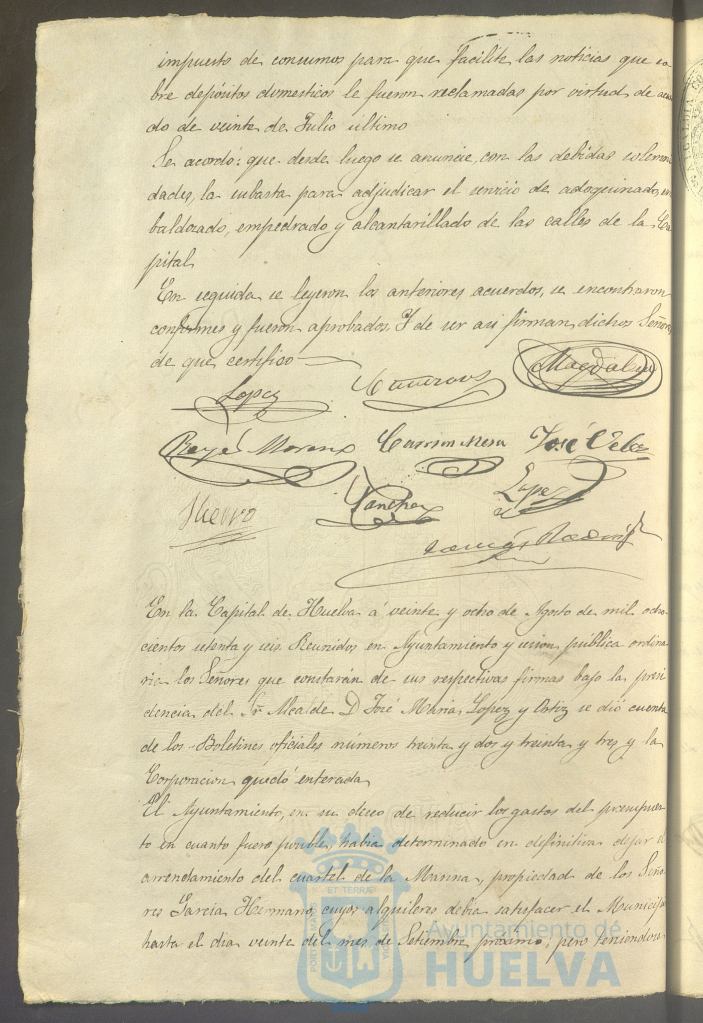 impuesto de consumos para que facilite las noticias que so
bre depósitos domesticos le fueron reclamadas por virtud de acuer
do de veinte de Julio último
Se acordó: que desde luego se anuncie, con las debidas solemni
dades, la subasta para adjudicar el servicio de adoquinado, em
baldosado, empedrado y alcantarillado de las calles de la Ca
pital
En seguida se leyeron los anteriores acuerdos, se encontraron
conformes y fueron aprobados. Y de ser asi firman, dichos Señores
de que certifico
Lopez Magdalena
Reyé Moreno Garrson Mesa José Velez
Hierro Sanchez Lopez
Tomás
En la Capital de Huelva á veinte y ocho de Agosto de mil ocho
cientos setenta y seis. Reunidos en Ayuntamiento y sesion publica ordina
ria los Señores que constarán de sus respectivas firmas bajo la presi
dencia del Sr. Alcalde D. José Maria Lopez y Ortiz se dió cuenta
de los Boletines oficiales números treinta y dos y treinta y tres y la
Corporacion quedó enterada
El Ayuntamiento, en su deseo de reducir los gastos del presupues
to en cuanto fuera posible, habia determinado en definitiva dejar el
arrendamiento del cuartel de la Marina, propiedad de los Seño
res Garcia Hermano, cuyos alquileres debia satisfacer el Municipio
hasta el dia veinte del mes de Setiembre proximo; pero teniendo
ET TERRA
Ayuntamiento de
HUELVA